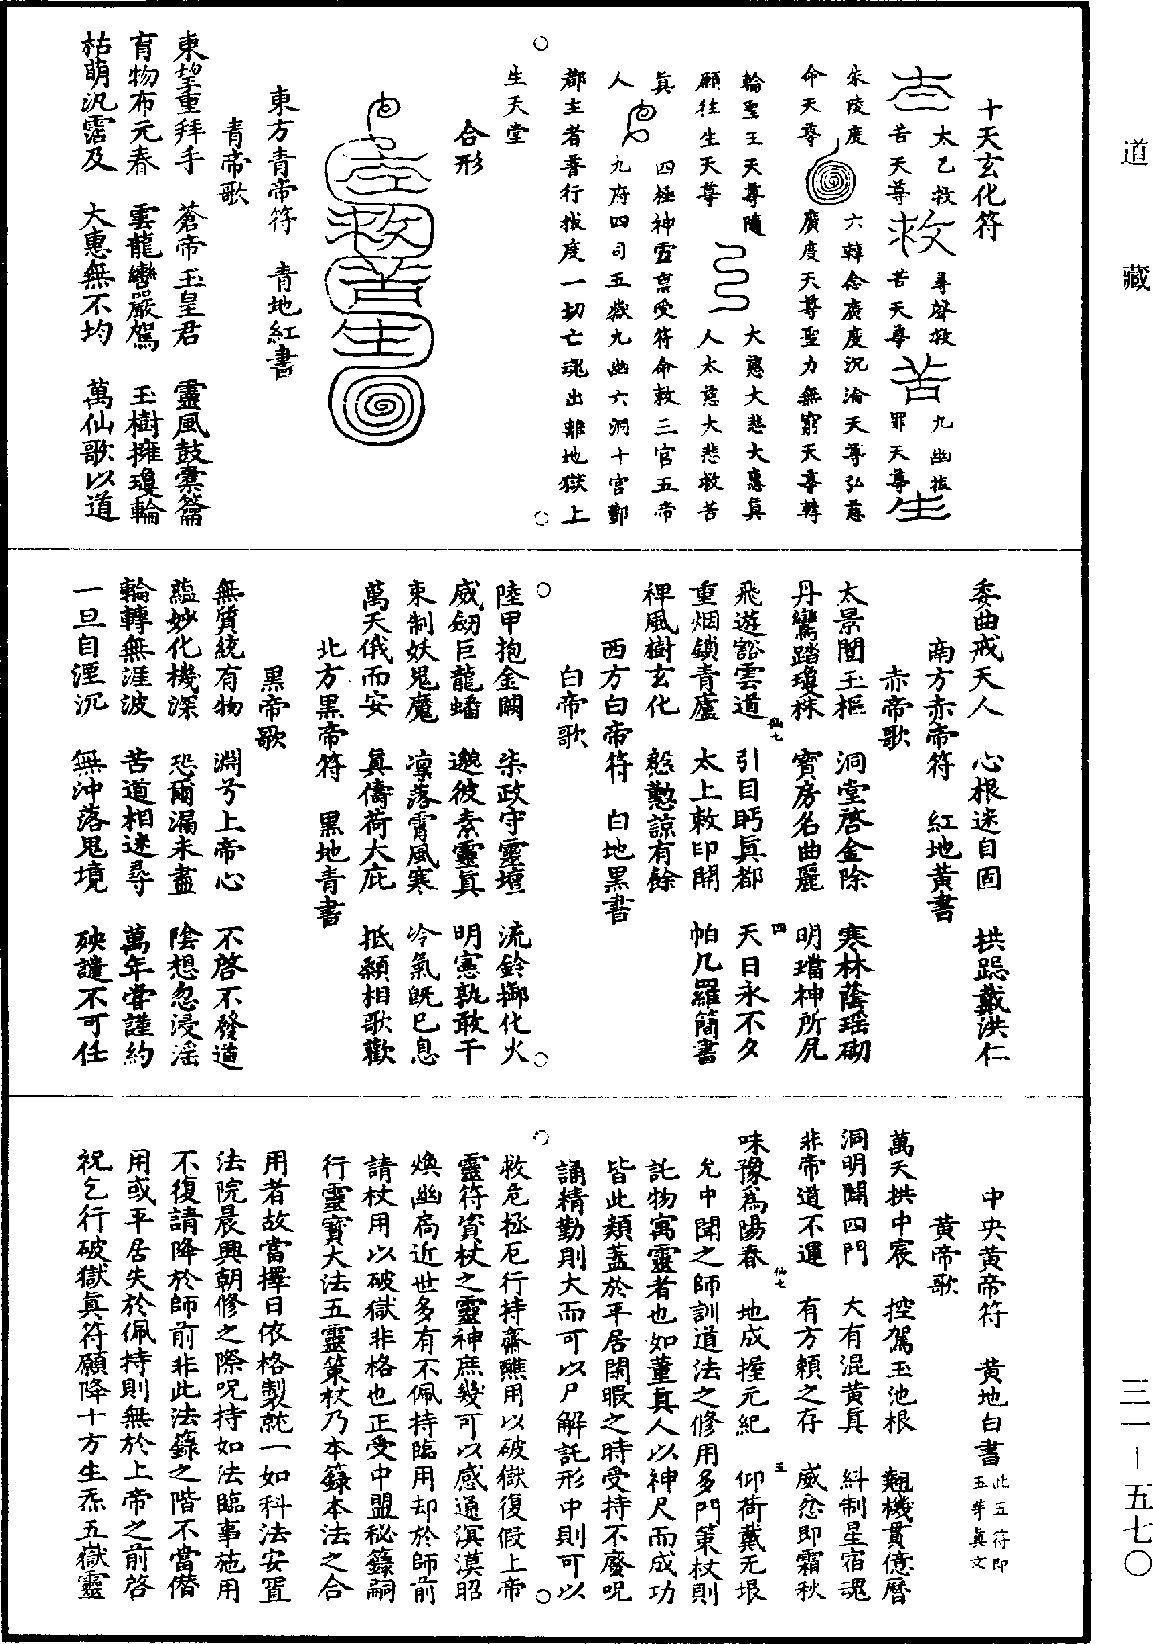 道藏
三一—五七〇
十天玄化符
太乙救
苦天尊
尋聲救
苦天尊
九幽拔
罪天尊
朱陵度
命天尊
六韓念廣度沉淪天尊弘慈
廣度天尊聖力無窮天尊轉
輪聖王天尊隨
願往生天尊
大慈大悲大惠真
人太慈大悲救苦
真
人
四極神靈禀受符命敕三官五帝
九府四司五嶽九幽六洞十宮酆
都主者普行拔度一切亡魂出離地獄上
生天堂
合形
東方青帝符 青地紅書
青帝歌
東望重拜手 蒼帝玉皇君 靈風鼓橐籥
育物布元春 雲龍巒嚴駕 玉樹擁瓊輪
枯萌汎霑及 大惠無不均 萬仙歌以道
委曲戒天人 心根迷自固 拱跽戴洪仁
南方赤帝符 紅地黃書
赤帝歌
太景闓玉樞 洞堂啓金除 寒林蔭瑶砌
丹鸞踏瓊株 寳房名曲麗 明璫神所凥
飛遊豁雲道 引目眄真都 天日永不夕
重烟鎖青廬 太上敕印開 帕几羅簡書
裨風樹玄化 慇懃諒有餘
西方白帝符 白地黑書
白帝歌
陸甲抱金闕 柒政守靈壇 流鈴擲化火
威劒巨龍蟠 邈彼素靈真 明憲孰敢干
束制妖鬼魔 凜落霄風寒 冷氣既已息
萬天俄而安 真儔荷大庇 抵顙相歌歡
北方黑帝符 黑地青書
黑帝歌
無質統有物 淵兮上帝心 不啓不發造
蘊妙化機深 恐爾漏未盡 陰想忽浸淫
輪轉無涯波 苦道相迷尋 萬年當謹約
一旦自湮沉 無沖落鬼境 殃譴不可任
中央黃帝符 黃地白書
此五符即
五芽真文
黃帝歌
萬天拱中宸 控駕玉池根 翹機貫億曆
洞明開四門 大有混黄真 糾制星宿魂
非帝道不運 有方賴之存 威忿即霜秋
味豫為陽春 地成握元紀 仰荷戴无垠
允中聞之師訓道法之修用多門策杖則
託物寓靈者也如董真人以神尺而成功
皆此類蓋於平居閑暇之時受持不廢呪
誦精勤則大而可以尸解託形中則可以
救危極厄行持齋醮用以破獄復假上帝
靈符資杖之靈神庶幾可以感通溟漠昭
煥幽扃近世多有不佩持臨用却於師前
請杖用以破獄非格也正受中盟秘籙嗣
行靈寳大法五靈策杖乃本籙本法之合
用者故當擇日依格製就一如科法安置
法院晨興朝修之際呪持如法臨事施用
不復請降於師前非此法籙之階不當僭
用或平居失於佩持則無於上帝之前啓
祝乞行破獄真符願降十方生炁五獄靈